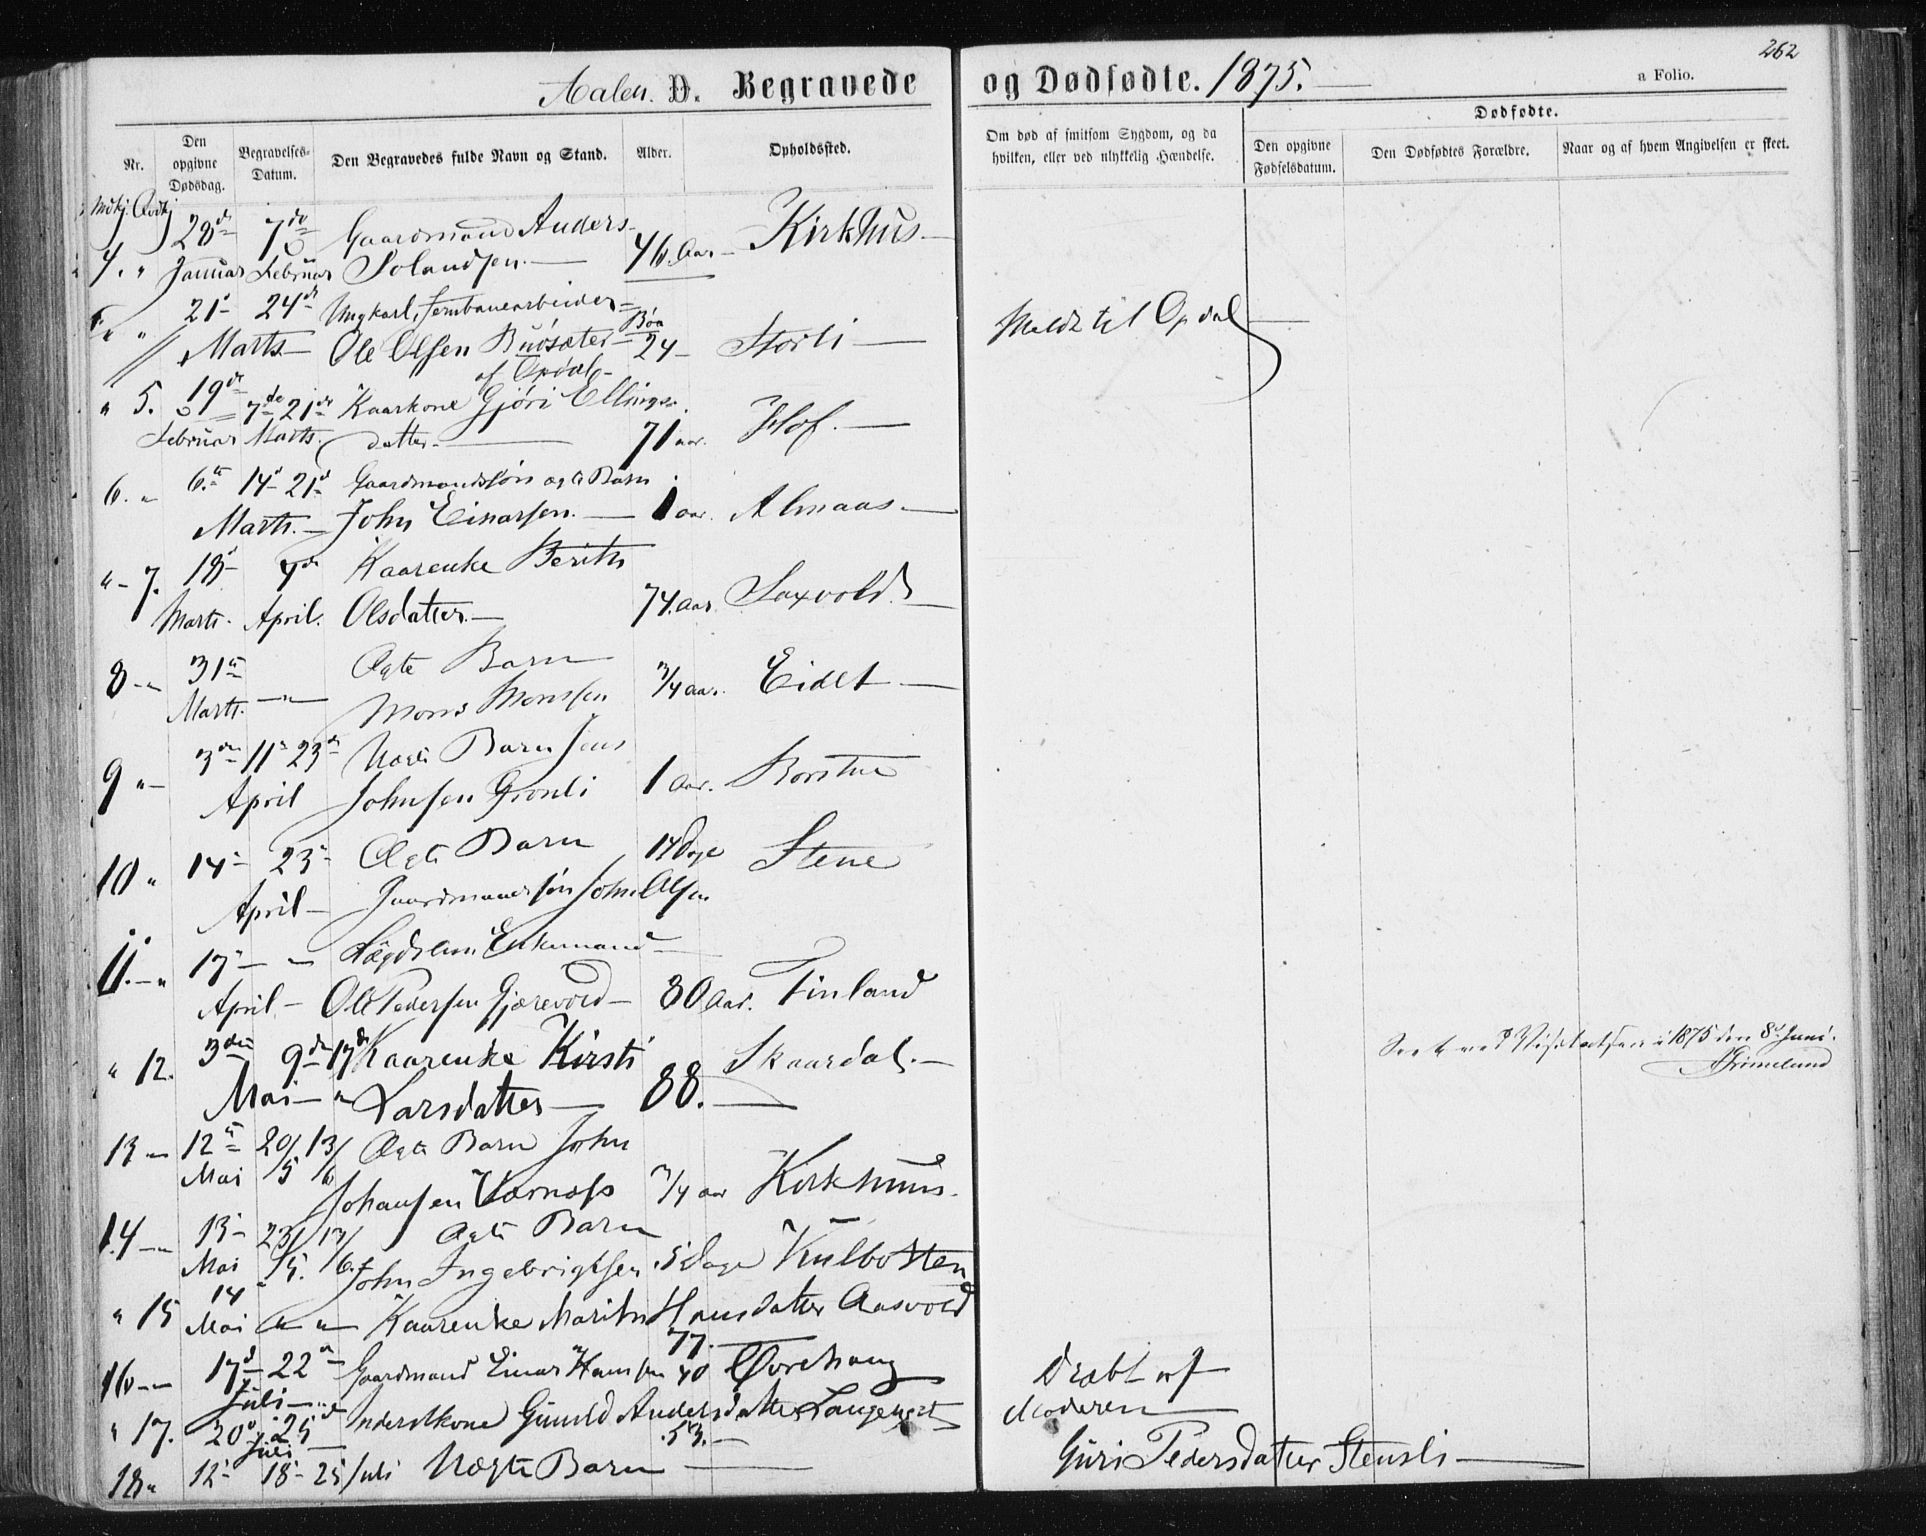 262
Aalen. D. Begravede og Dødfødte. 1875.
a Folio.
Nr.
Den opgivne Dødsdag.
Begravelses-Datum.
Den Begravedes fulde Navn og Stand.
Alder.
Opholdssted.
Om død af smitsom Sygdom, og da hvilken, eller ved ulykkelig Hændelse.
Dødfødte.
Den opgivne Fødselsdatum.
Den Dødfødtes Forældre.
Naar og af hvem Angivelsen er skeet.
Mdkj. Qvdkj
28de 7de Gaardmand Anders
4. " Januar Februar Solandsen. — 46. Aar — Kirkhus —
21 24de Ungkarl, Jernbanearbeider
" " Marts — Ole Olsen Buósæter 24 — Storli — Meldt til Opdal
af Opdal
" 5. 19de 7de 21de Kaarkone Gjøri Ellings
Februar Marts. datter — 71 aar. Hof. —
6. " 6te 14d 21d Gaardmandssøn ægte Barn
Marts. — John Einarsen. — 1 aar. Almaas. —
" 7. 18 4de Kaarenke Berith
Marts. April. Olsdatter. — 74. Aar. Saxvold. —
8 " 31te Ægte Barn
Marts. — " — Mons Monssen 3/4 aar. Eidet —
9 " 3die 11 23de Uægte Barn Jens
April Johnsen Gronli 1 Aar. Borstue
10 " 14 23 Ægte Barn 14 Dage Stene
April — Gaardmandssøn John Olsen
11. " 17 — Lægdslem Enkemand —
April — Ole Pedersen Gjærevold — 80 Aar. Finland
" 12. 3die 9de 17de Kaarenke Kirsti Skaardal. —
Mai — " Larsdatter — 88. —
Seet ved Visitatsen i 1875 den 8de Juni.
Grimelund
13 — 12te 20/5 13/6 Ægte Barn John
Mai Johansen Værnæss 3/4 aar Kirkhuus.
14 — " 13 23/5. 13/6. Ægte Barn
Mai John Ingebrigtsen 5 Dage Kulbotten
" 15 14 Mai " " — Kaarenke Marith Hansdatter Aasvold
77. —
16 — " 17d 22d Gaardmand Einar Hansen 40 Øvrehaug
Juli —
" 17. 20d 25 Inderstkone Gunild Andersdatter Langenget
Juli 53. —
18 " 12 18 — 25 Juli Uægte Barn —
Dræbt af
Moderen —
Guri Pedersdatter Stensli —